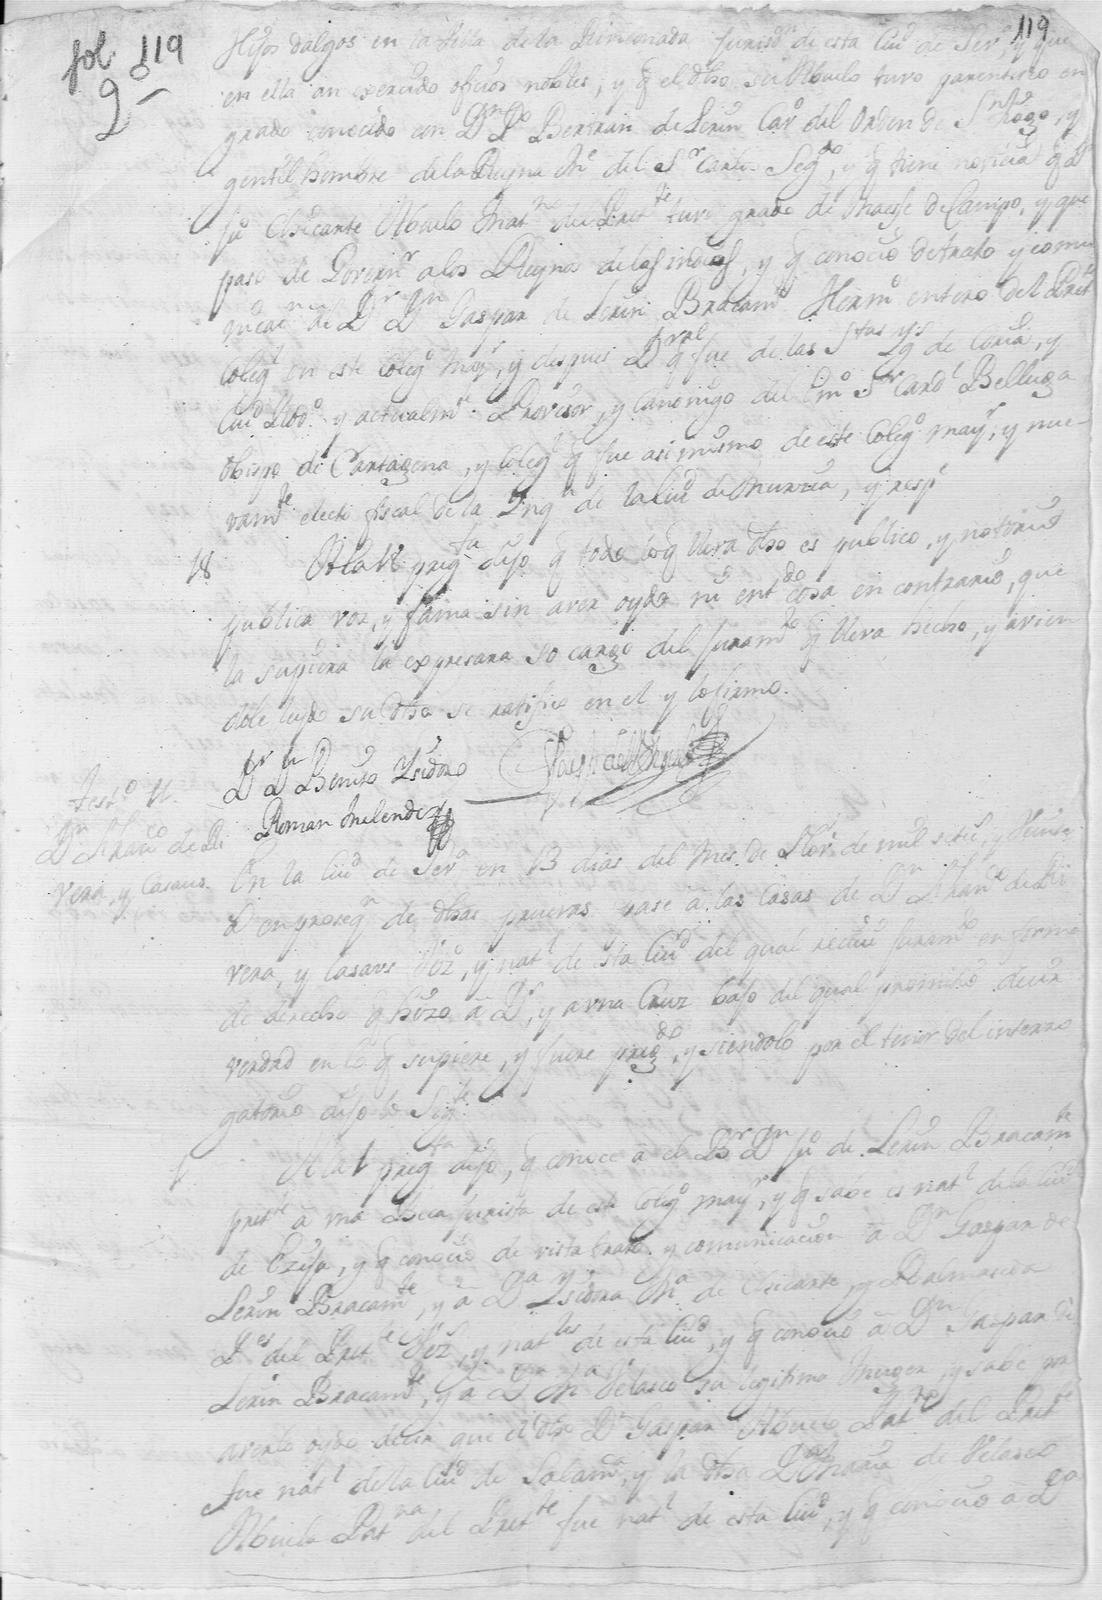 fol. 119
2º
119
Hijos dalgos en la Villa de la Rinconada Jurisdn de esta Ciud de Seva, y que
en ella an exercido oficios nobles, y q el dho su Abuelo tuvo parentesco en
grado conocido con Dn Po Bertran de Lerin Cavo del Orden de Sn, y
gentil hombre de la Reyna Me del Sr Carlos Segdo, y q tiene noticia q Dn
Ju Alicante Abuelo Matno del Prette tuvo grado de Maese de Campo, y que
paso de Governr a los Reynos de las Indias, y q conocio de trato y comu-
nicaon de Dr Dn Gaspar de Lerin Bracamte Hermo entero del Prette
Colegl en este Colego mayr, y despues Dral q fue de las Stas Ygs de Coria, y
Ciud Rodo y actualmte Provisor, y canonigo del Emo Sr Cardl Belluga
Obispo de Cartagena, y Colegl q fue asimismo de este Colego mayr, y nue-
vamte electo fiscal de la Inqn de la Ciud de Murcia, y respe
18 A la 18 pregta dijo q todo lo q lleva dho es publico, y notorio
publica voz, y fama sin aver oydo ni entdo cosa en contrario, que
la supiera la expresara so cargo del Juramto q lleva hecho, y avien
dole leydo su dho se ratifico en el y lo firmo.
Dr Dn Benito Ysidoro
Roman Melendez
Testo 11.
Dn Alvaro de Ri
vera, y Casaus.
En la Ciud de Seva en 13 dias del Mes de de mil setes, y Veinte
en proseqn de dhas pruevas pase a las Casas de Dn Alvaro de Ri
vera, y Casaus Vezo, y natl de esta Ciud del qual recivi Juramto en forma
de derecho q hizo a Ds, y a vna Cruz bajo del qual prometio decir
verdad en lo q supiere, y fuere pregdo, y siendolo por el tenor del interro
gatorio dijo lo Sigte
1 A la 1 pregta dijo, q conoce a el Br Dn Ju de Lerin Bracamte
prette a vna Beca Jurista de este Colego mayr, y q sabe es natl de la Ciud
de Ezija, y q conocio de vista trato y comunicacion a Dn Gaspar de
Lerin Bracamte, y a Da Ysidora Ma de Alicante, y Valmaseda
Pes del Prette Vezs, y natles de esta Ciud, y q conocio a Dn Gaspar de
Lerin Bracamte, y a Da Ma Velasco su legitima Muger, y sabe por
averlo oydo decir que el dho Dn Gaspar Abuelo Patno del Prette
fue natl de la Ciud de Salamca, y la dha Da Maria de Velasco
Abuela Patna del Prette fue natl de esta Ciud, y q conocio a Da